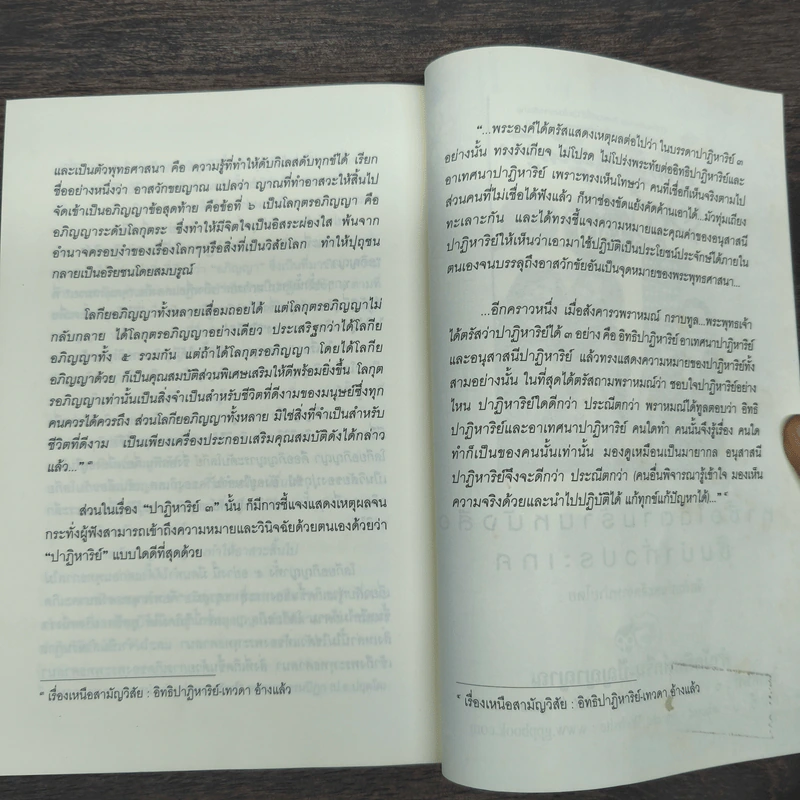 และเป็นตัวพุทธศาสนา คือ ความรู้ที่ทำให้ดับกิเลสดับทุกข์ได้ เรียก
ชื่ออย่างหนึ่งว่า อาสวักขยญาณ แปลว่า ญาณที่ทำอาสวะให้สิ้นไป
จัดเข้าเป็นอภิญญาข้อสุดท้าย คือข้อที่ ๖ เป็นโลกุตรอภิญญา คือ
อภิญญาระดับโลกุตระ ซึ่งทำให้มีจิตใจเป็นอิสระผ่องใส พ้นจาก
อำนาจครอบงำของเรื่องโลกๆหรือสิ่งที่เป็นวิสัยโลก ทำให้ปุถุชน
กลายเป็นอริยชนโดยสมบรูณ์
โลกียอภิญญาทั้งหลายเสื่อมถอยได้ แต่โลกุตรอภิญญาไม่
กลับกลาย ได้โลกุตรอภิญญาอย่างเดียว ประเสริฐกว่าได้โลกีย
อภิญญาทั้ง ๕ รวมกัน แต่ถ้าได้โลกุตรอภิญญา โดยได้โลกีย
อภิญญาด้วย ก็เป็นคุณสมบัติส่วนพิเศษเสริมให้ดีพร้อมยิ่งขึ้น โลกุต
รอภิญญาเท่านั้นเป็นสิ่งจำเป็นสำหรับชีวิตที่ดีงามของมนุษย์ซึ่งทุก
คนควรได้ควรถึง ส่วนโลกียอภิญญาทั้งหลาย มิใช่สิ่งที่จำเป็นสำหรับ
ชีวิตที่ดีงาม เป็นเพียงเครื่องประกอบเสริมคุณสมบัติดังได้กล่าว
แล้ว...”
ส่วนในเรื่อง “ปาฏิหาริย์ ๓” นั้น ก็มีการชี้แจงแสดงเหตุผลจน
กระทั่งผู้ฟังสามารถเข้าถึงความหมายและวินิจฉัยด้วยตนเองด้วยว่า
“ปาฏิหาริย์” แบบใดดีที่สุดด้วย
เรื่องเหนือสามัญวิสัย : อิทธิปาฏิหาริย์-เทวดา อ้างแล้ว
“...พระองค์ได้ตรัสแสดงเหตุผลต่อไปว่า ในบรรดาปาฏิหาริย์ ๓
อย่างนั้น ทรงรังเกียจ ไม่โปรด ไม่โปร่งพระทัยต่ออิทธิปาฏิหาริย์และ
อาเทศนาปาฏิหาริย์ เพราะทรงเห็นโทษว่า คนที่เชื่อก็เห็นจริงตามไป
ส่วนคนที่ไม่เชื่อได้ฟังแล้ว ก็หาช่องขัดแย้งคัดค้านเอาได้...มัวทุ่มเถียง
ทะเลาะกัน และได้ทรงชี้แจงความหมายและคุณค่าของอนุสาสนี
ปาฏิหาริย์ให้เห็นว่าเอามาใช้ปฏิบัติเป็นประโยชน์ประจักษ์ได้ภายใน
ตนเองจนบรรลุถึงอาสวักขัยอันเป็นจุดหมายของพระพุทธศาสนา...
...อีกคราวหนึ่ง เมื่อสังคารวพราหมณ์ กราบทูล...พระพุทธเจ้า
ได้ตรัสว่าปาฏิหาริย์ได้ ๓ อย่าง คือ อิทธิปาฏิหาริย์ อาเทศนาปาฏิหาริย์
และอนุสาสนีปาฏิหาริย์ แล้วทรงแสดงความหมายของปาฏิหาริย์ทั้ง
สามอย่างนั้น ในที่สุดได้ตรัสถามพราหมณ์ว่า ชอบใจปาฏิหาริย์อย่าง
ไหน ปาฏิหาริย์ใดดีกว่า ประณีตกว่า พราหมณ์ได้ทูลตอบว่า อิทธิ
ปาฏิหาริย์และอาเทศนาปาฏิหาริย์ คนใดทำ คนนั้นจึงรู้เรื่อง คนใด
ทำก็เป็นของคนนั้นเท่านั้น มองดูเหมือนเป็นมายากล อนุสาสนี
ปาฏิหาริย์จึงจะดีกว่า ประณีตกว่า (คนอื่นพิจารณารู้เข้าใจ มองเห็น
ความจริงด้วยและนำไปปฏิบัติได้ แก้ทุกข์แก้ปัญหาได้)...”
เรื่องเหนือสามัญวิสัย : อิทธิปาฏิหาริย์-เทวดา อ้างแล้ว